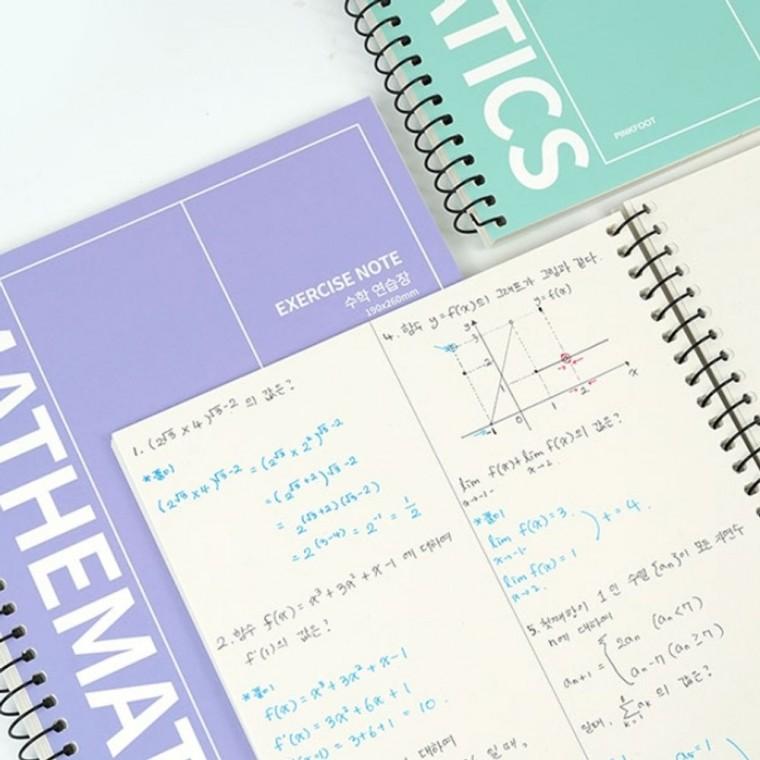 ATICS
PINKFOOT
EXERCISE NOTE
수학 연습장
190x260mm
MATHEMAT
1. (2^√3 × 4)^√3-2 의 값은?
*풀이
(2^√3 × 4)^√3-2 = (2^√3 × 2²)^√3-2
= (2^√3+2)^√3-2
= 2^(√3+2)(√3-2)
= 2^(3-4) = 2^-1 = 1/2
2. 함수 f(x) = x³ + 3x² + x - 1 에 대하여
f'(1)의 값은?
*풀이
f(x) = x³ + 3x² + x - 1
f'(x) = 3x² + 6x + 1
= 3+6+1 = 10.
대하여
일 때,
4. 함수 y=f(x)의 그래프가 그림과 같다.
y
y=f(x)
3
2
1
-1 0 1 2 x
lim x→-1- f(x) + lim x→2. f(x)의 값은?
*풀이
lim x→-1- f(x) = 3.
) + = 4.
lim x→2. f(x) = 1
5. 첫째항이 1인 수열 {an}이 모든 자연수
n에 대하여
an+1 = { 2an (an < 7)
an - 7 (an ≥ 7)
일때, 8 Σ k=1 ak 의 값은?
a1 = 1